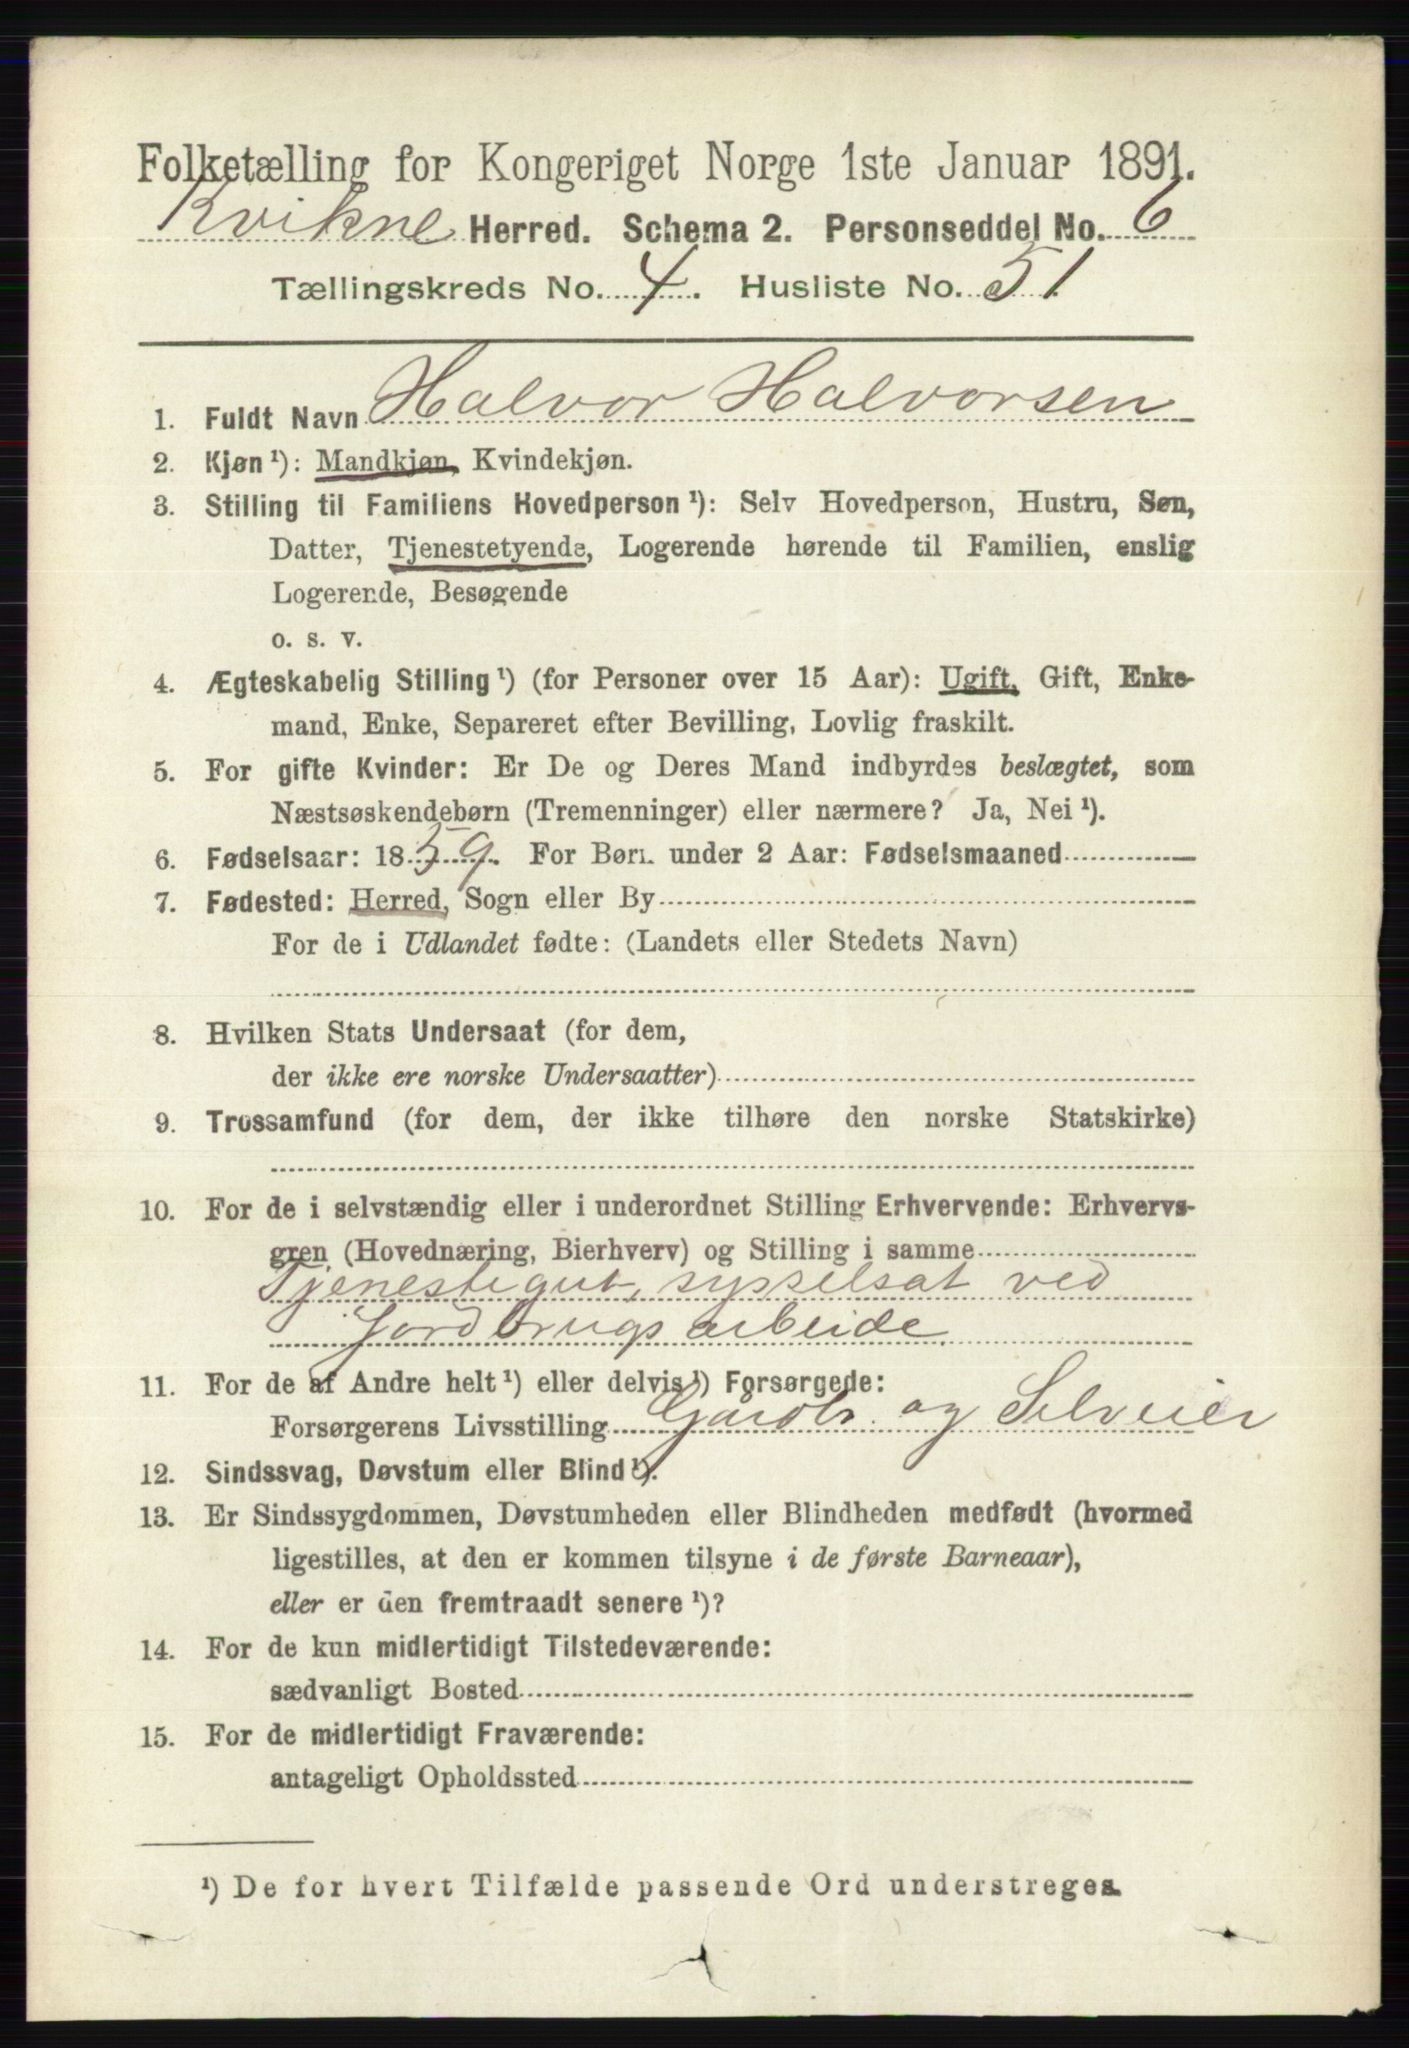 Folketælling for Kongeriget Norge 1ste Januar 1891.
Kvikne Herred. Schema 2. Personseddel No. 6
Tællingskreds No. 4. Husliste No. 51
1. Fuldt Navn Halvor Halvorsen
2. Kjøn ¹): Mandkjøn, Kvindekjøn.
3. Stilling til Familiens Hovedperson ¹): Selv Hovedperson, Hustru, Søn,
Datter, Tjenestetyende, Logerende hørende til Familien, enslig
Logerende, Besøgende
o. s. v.
4. Ægteskabelig Stilling ¹) (for Personer over 15 Aar): Ugift, Gift, Enke-
mand, Enke, Separeret efter Bevilling, Lovlig fraskilt.
5. For gifte Kvinder: Er De og Deres Mand indbyrdes beslægtet, som
Næstsøskendebørn (Tremenninger) eller nærmere? Ja, Nei ¹).
6. Fødselsaar: 1859. For Børn under 2 Aar: Fødselsmaaned
7. Fødested: Herred, Sogn eller By
For de i Udlandet fødte: (Landets eller Stedets Navn)
8. Hvilken Stats Undersaat (for dem,
der ikke ere norske Undersaatter)
9. Trossamfund (for dem, der ikke tilhøre den norske Statskirke)
10. For de i selvstændig eller i underordnet Stilling Erhvervende: Erhvervs-
gren (Hovednæring, Bierhverv) og Stilling i samme
Tjenestegut, sysselsat ved
Jordbrugsarbeide
11. For de af Andre helt ¹) eller delvis ¹) Forsørgede:
Forsørgerens Livsstilling Gårdbr. og Selveier
12. Sindssvag, Døvstum eller Blind ¹).
13. Er Sindssygdommen, Døvstumheden eller Blindheden medfødt (hvormed
ligestilles, at den er kommen tilsyne i de første Barneaar),
eller er den fremtraadt senere ¹)?
14. For de kun midlertidigt Tilstedeværende:
sædvanligt Bosted
15. For de midlertidigt Fraværende:
antageligt Opholdssted
¹) De for hvert Tilfælde passende Ord understreges.